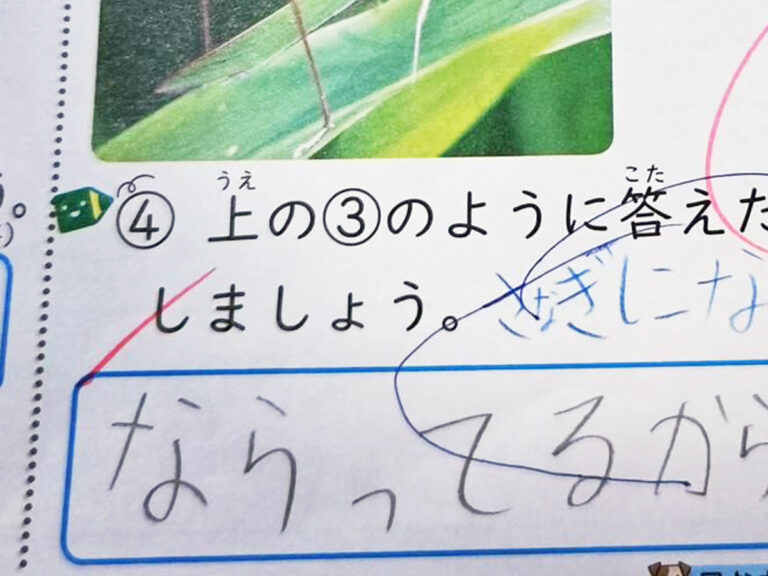 ④ 上の③のように答えた
しましょう。 さなぎにな
ならってるから